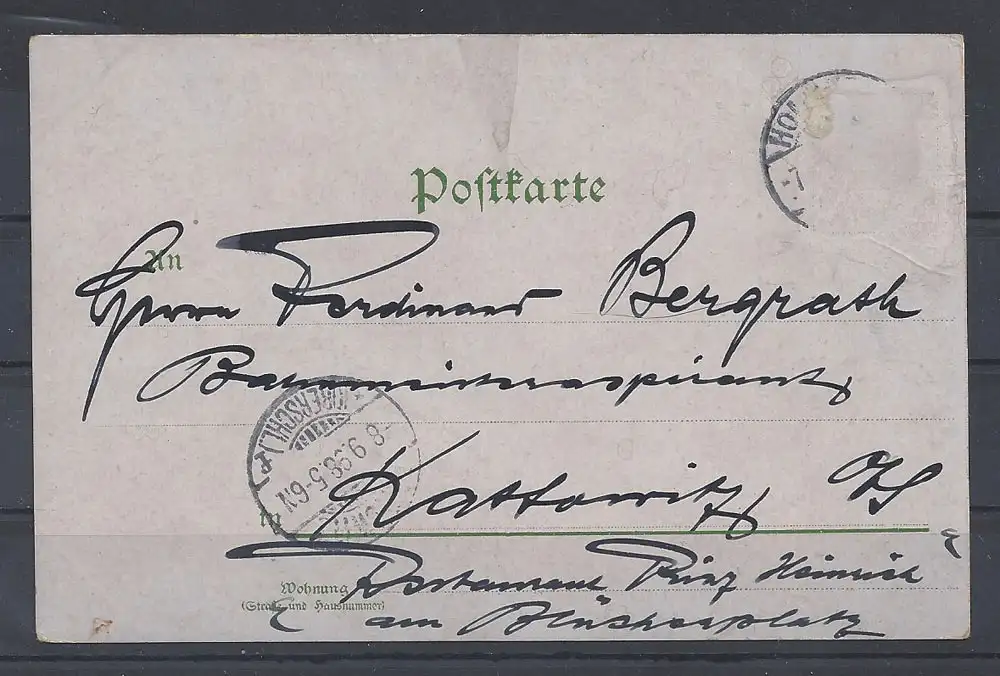 HO
Postkarte
An
Herrn Ferdinand Bergrath
Bahnmeisteraspirant
(OBERSCHL.)
8.9.98.5-6N
in Kattowitz O/S
Restaurant Prinz Heinrich
Wohnung
(Straße und Hausnummer)
am Blücherplatz